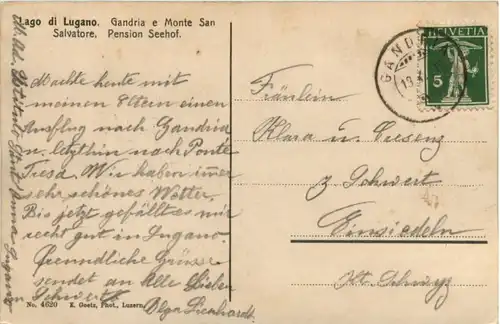 Lago di Lugano. Gandria e Monte San
Salvatore, Pension Seehof.
Machte heute mit
meinen Eltern einen
Ausflug nach Gandria
u. letzthin nach Ponte
Tresa. Wir haben immer
sehr schönes Wetter.
Bis jetzt gefällt es mir
recht gut in Lugano.
Freundliche Grüsse
sendet an Alle Lieben
im Schwert
Olga Lienhardt
No. 4620 E. Goetz, Phot., Luzern.
HELVETIA
5
GAND
Fräulein
Klara u.
z. Schwert
Einsiedeln
Kt. Schwyz